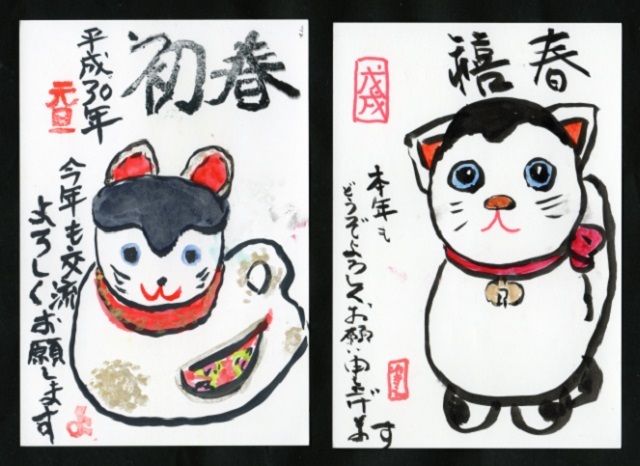 初春
平成30年
元旦
今年も交流
よろしくお願いします
春禧
戊戌
本年も
どうぞよろしくお願い申上げます